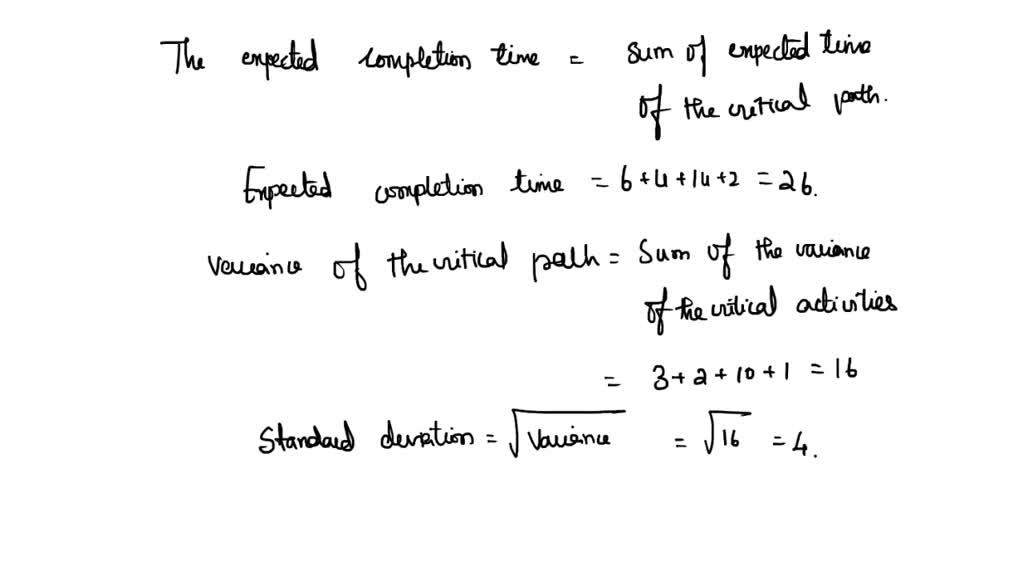 The expected completion time = Sum of expected time
of the critical path.
Expected completion time = 6+4+14+2 = 26.
Variance of the critical path = Sum of the variance
of the critical activities
= 3+2+10+1 = 16
Standard deviation = √Variance = √16 = 4.